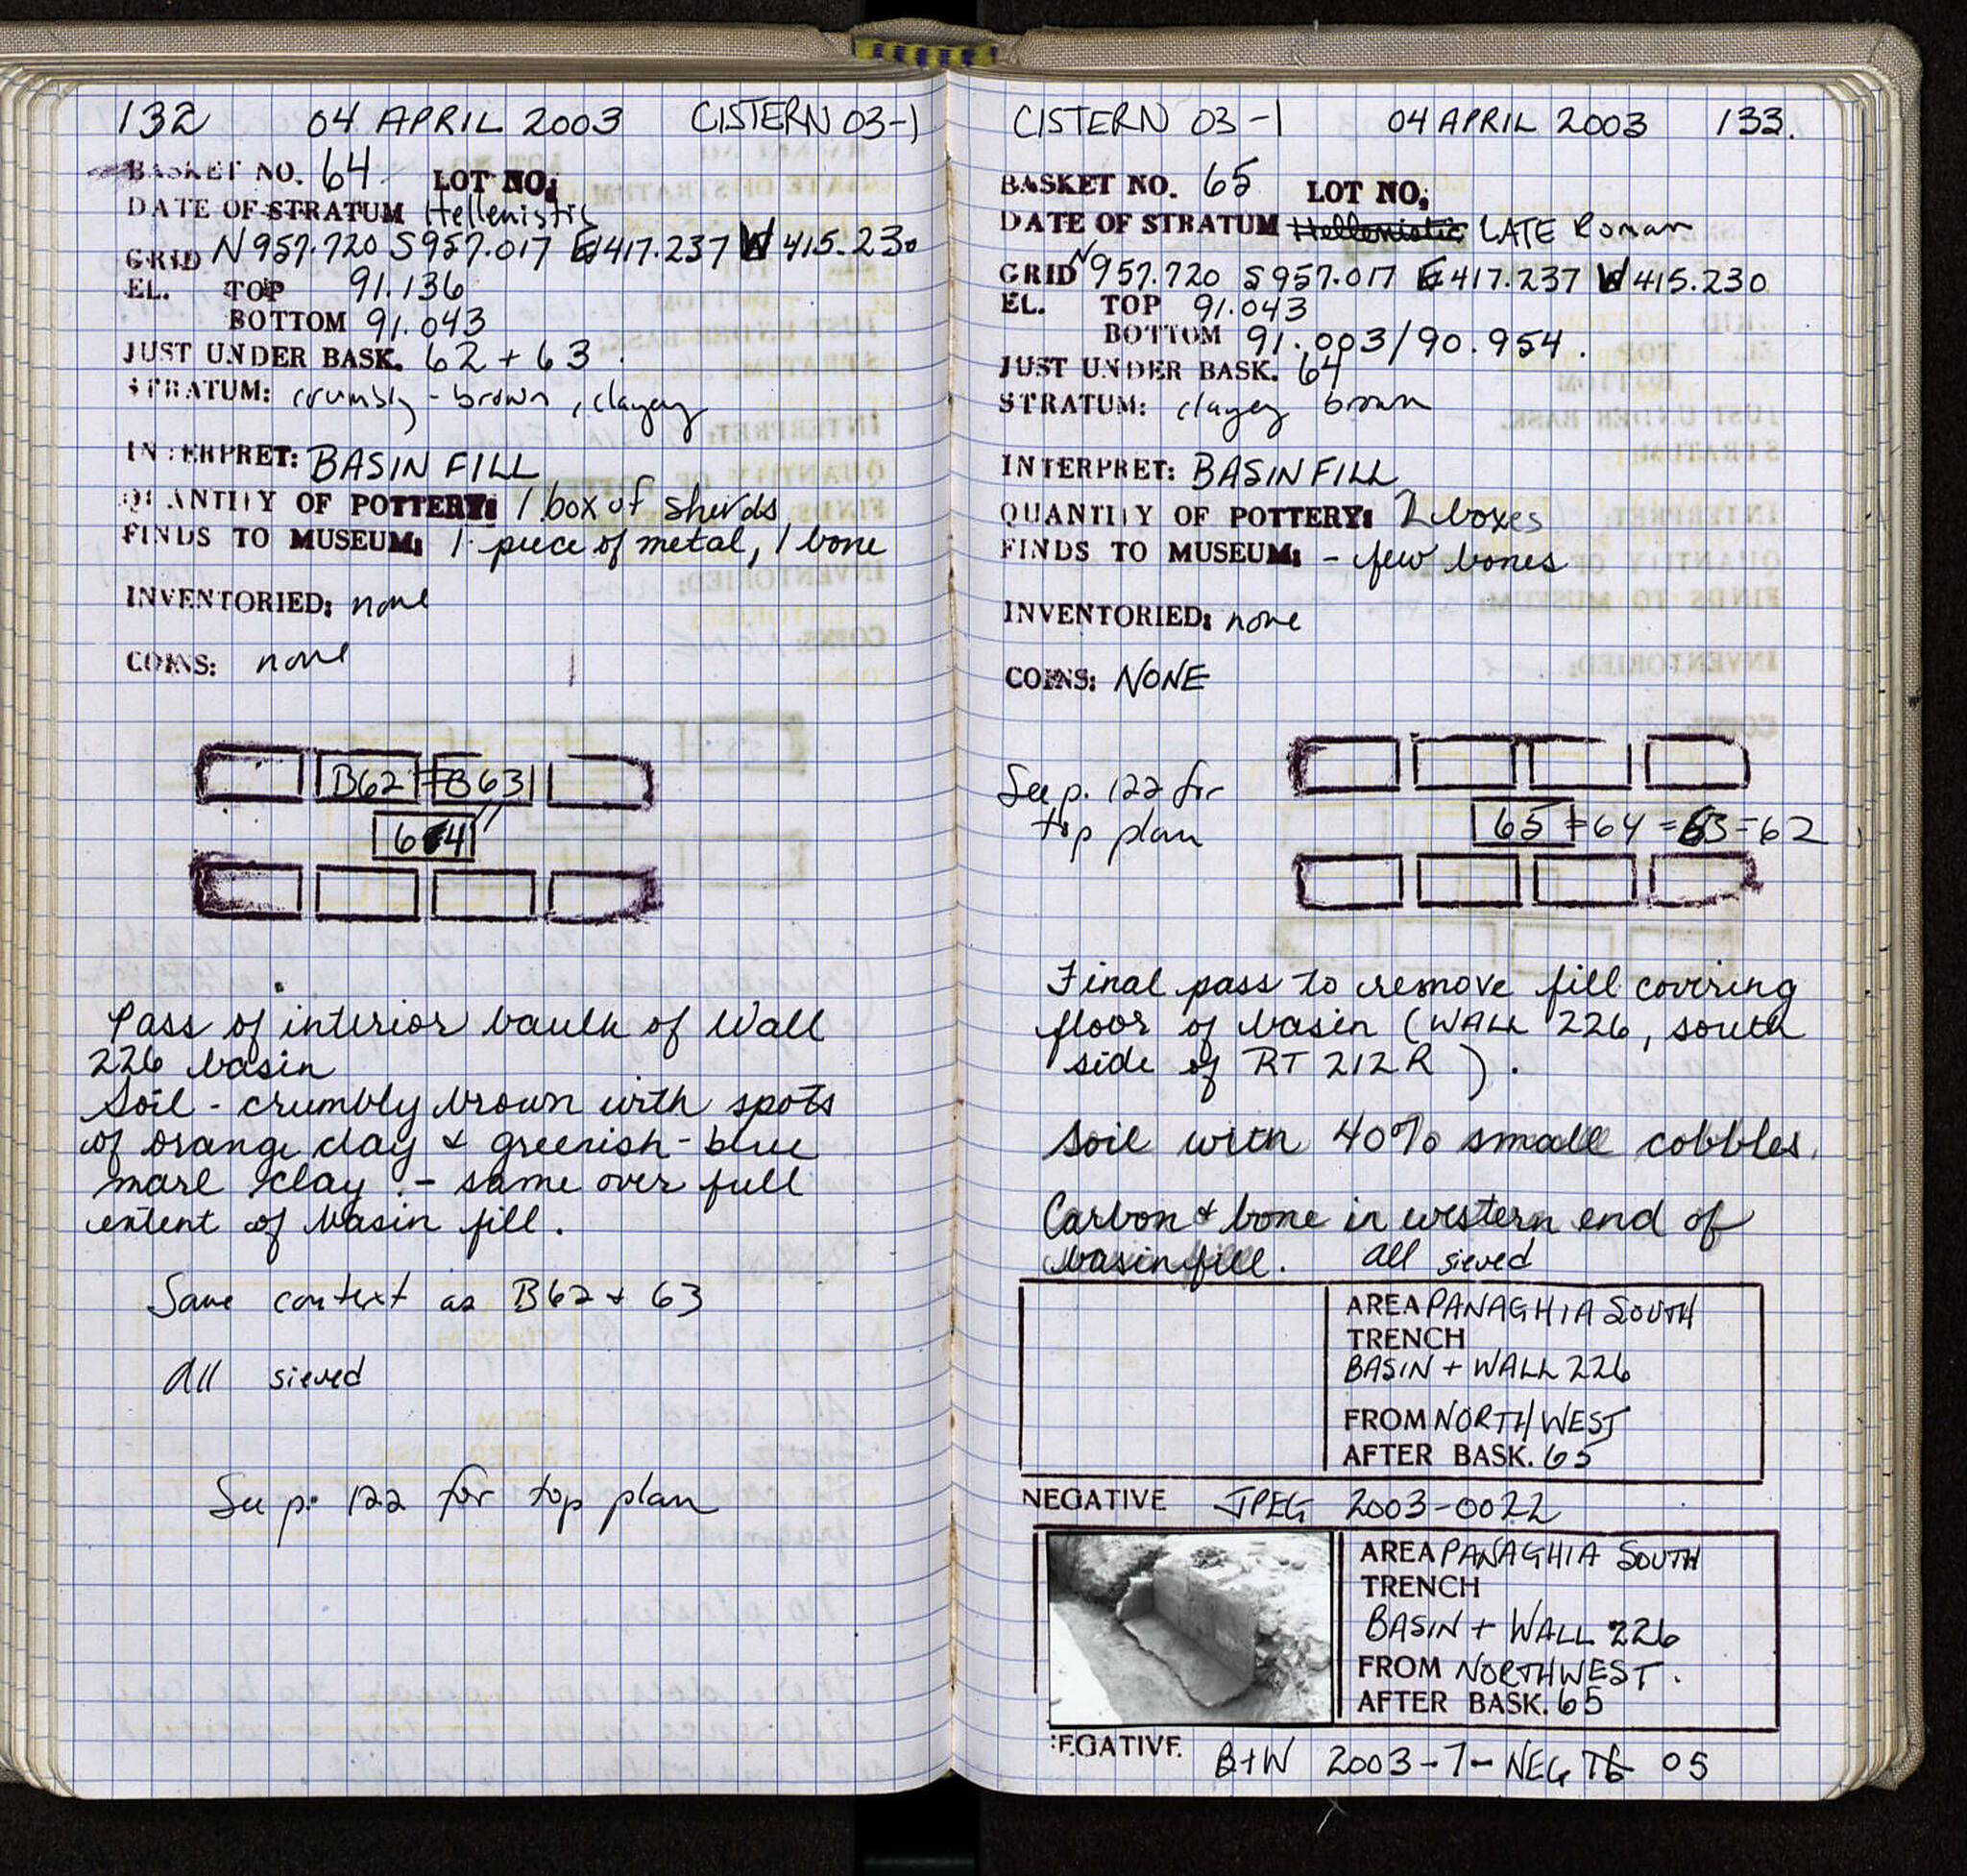 132 04 APRIL 2003 CISTERN 03-1
BASKET NO. 64 LOT NO:
DATE OF STRATUM Hellenistic
GRID N 957.720 S957.017 E417.237 W 415.230
EL. TOP 91.136
BOTTOM 91.043
JUST UNDER BASK. 62 + 63.
STRATUM: crumbly - brown, clayey
INTERPRET: BASIN FILL
QUANTITY OF POTTERY: 1 box of sherds
FINDS TO MUSEUM: 1 piece of metal, 1 bone
INVENTORIED: none
COINS: none
B62 = B63
64
Pass of interior baulk of Wall
226 basin
Soil - crumbly brown with spots
of orange clay & greenish-blue
marl clay. - same over full
extent of basin fill.
Same context as B62 & 63
All sieved
See p. 122 for top plan
CISTERN 03-1 04 APRIL 2003 133.
BASKET NO. 65 LOT NO:
DATE OF STRATUM Hellenistic LATE Roman
GRID N957.720 S957.017 E417.237 W415.230
EL. TOP 91.043
BOTTOM 91.003/90.954.
JUST UNDER BASK. 64
STRATUM: clayey brown
INTERPRET: BASIN FILL
QUANTITY OF POTTERY: 2 boxes
FINDS TO MUSEUM: - few bones
INVENTORIED: none
COINS: NONE
See p. 122 for
top plan
65 = 64 = 63 = 62
Final pass to remove fill covering
floor of basin (WALL 226, south
side of RT 212R ).
Soil with 40% small cobbles.
Carbon & bone in western end of
basin fill. All sieved
AREA PANAGHIA SOUTH
TRENCH
BASIN + WALL 226
FROM NORTHWEST
AFTER BASK. 65
NEGATIVE JPEG 2003-0022
AREA PANAGHIA SOUTH
TRENCH
BASIN + WALL 226
FROM NORTHWEST.
AFTER BASK. 65
NEGATIVE B+W 2003-7-NEG 05